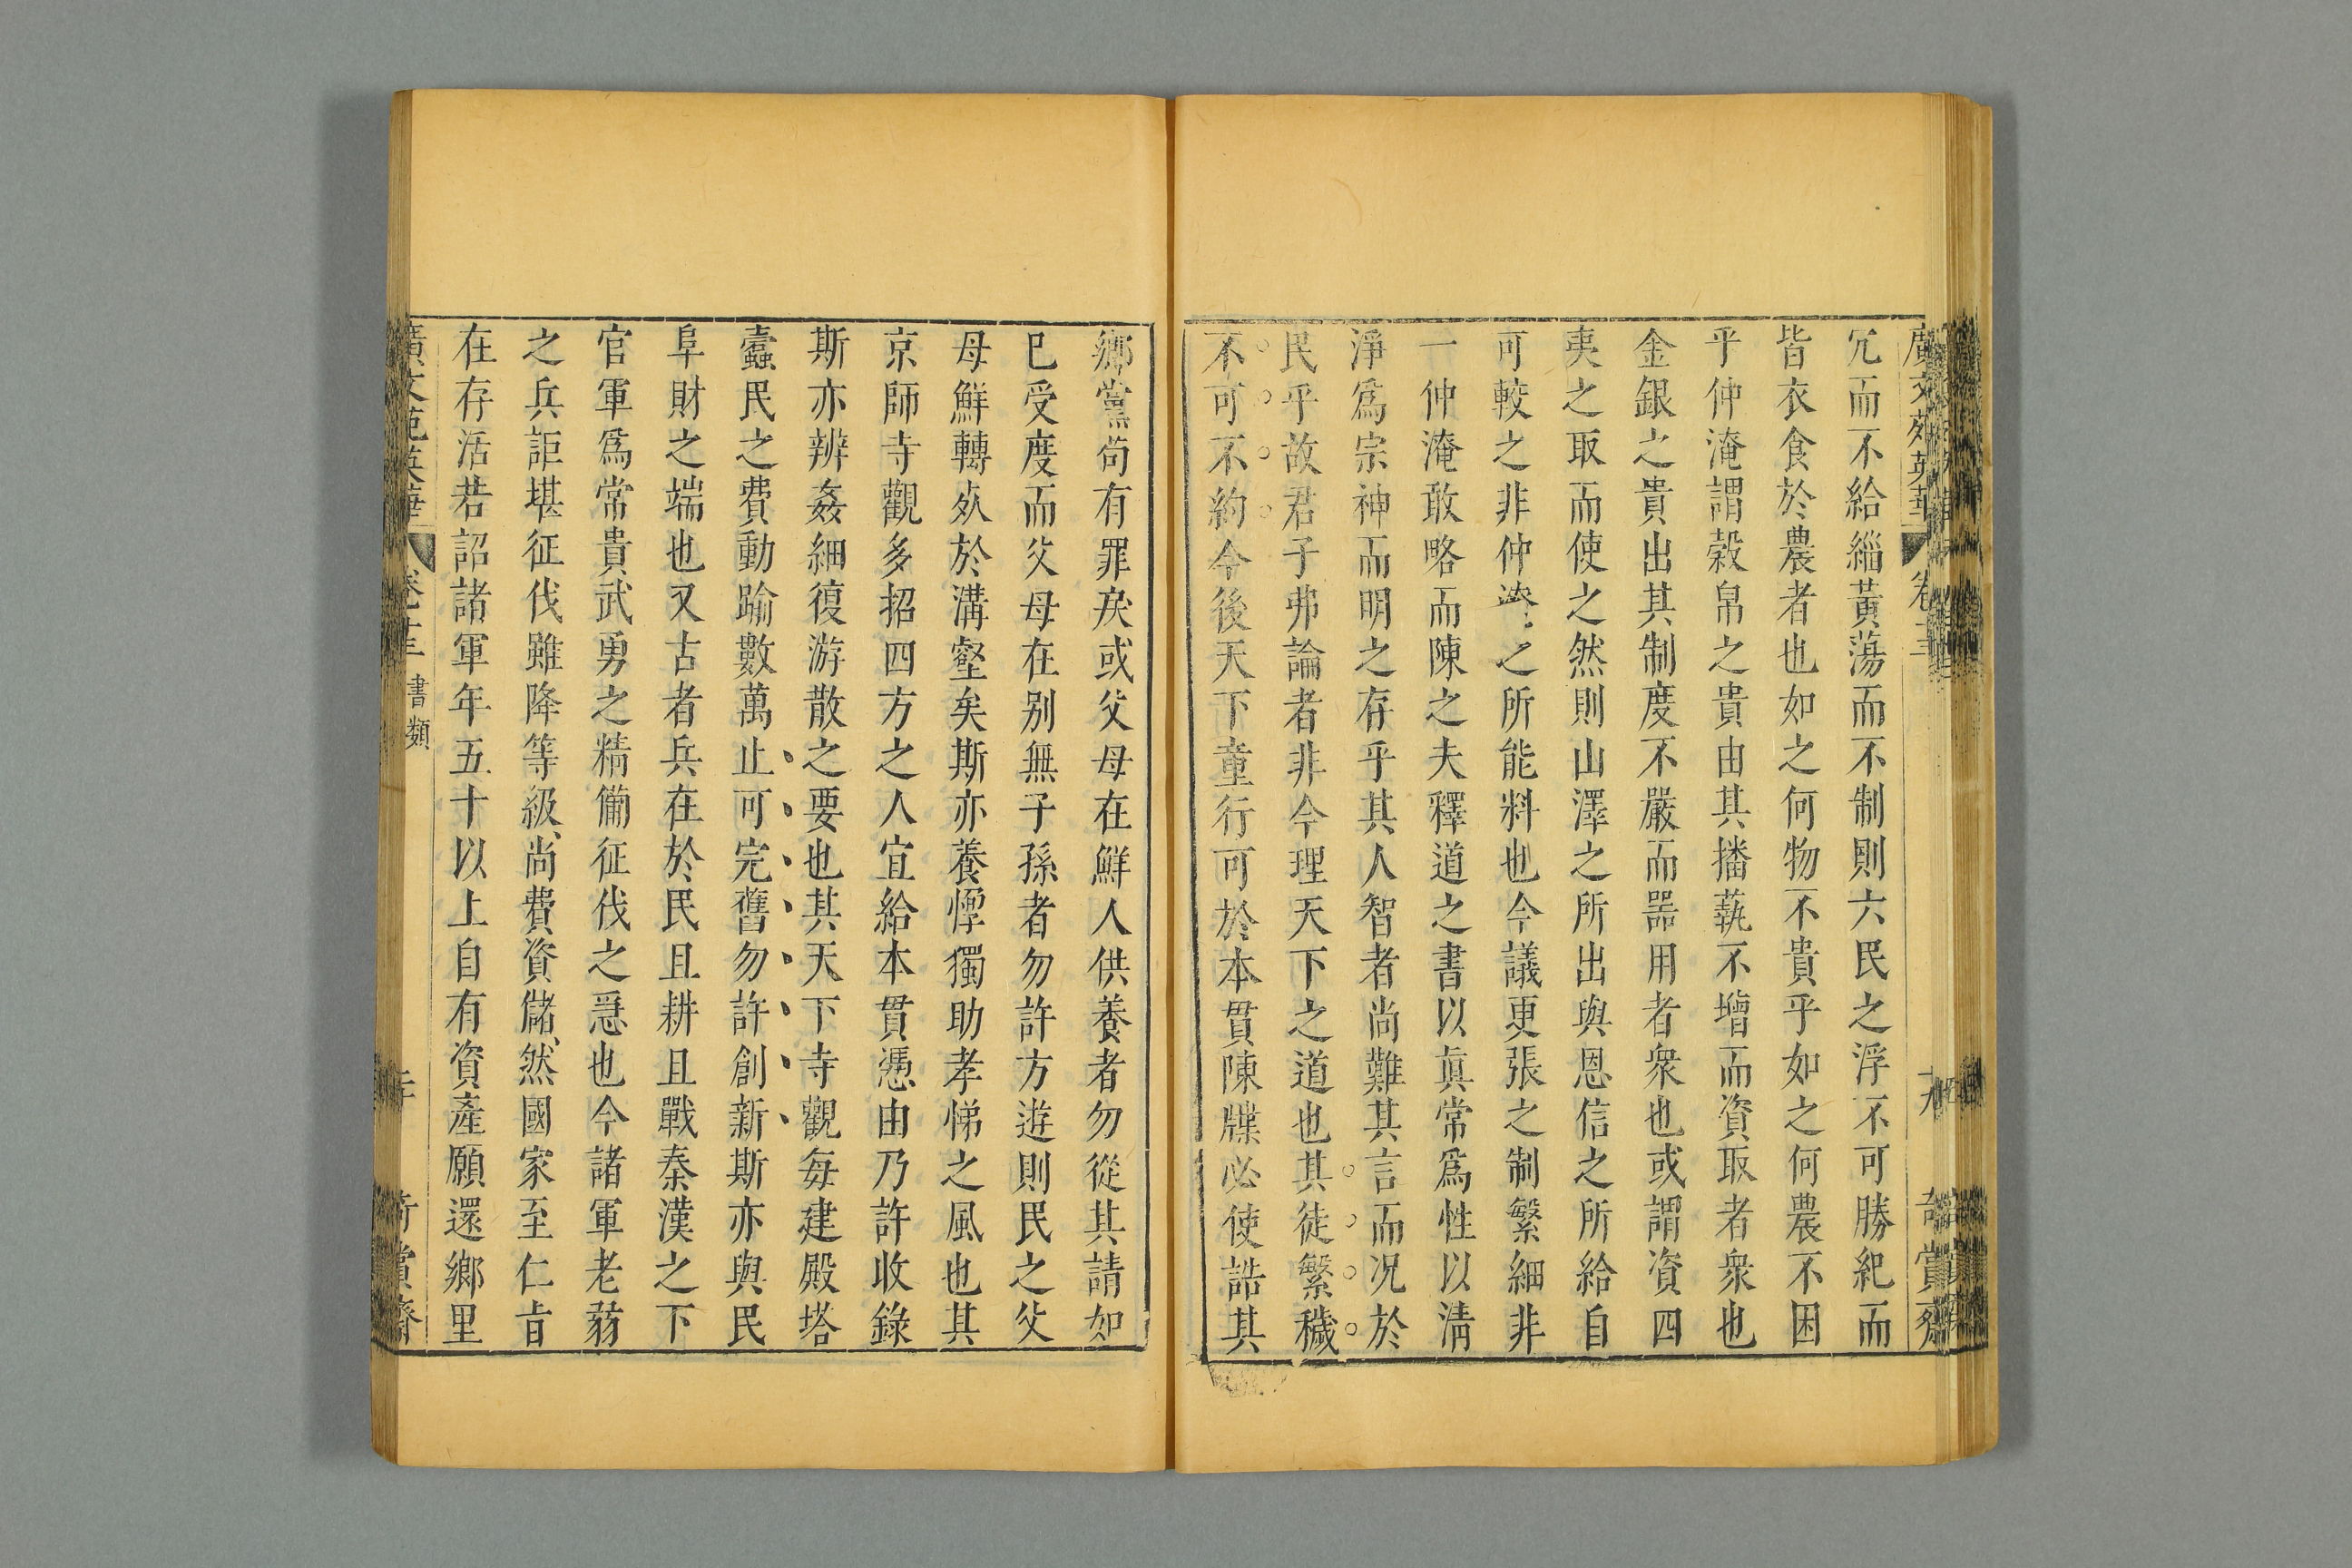 廣文苑英華 卷十三 十九 奇賞齋
冗而不給緇黃蕩而不制則六民之浮不可勝紀而
皆衣食於農者也如之何物不貴乎如之何農不困
乎仲淹謂榖帛之貴由其播蓺不增而資取者衆也
金銀之貴出其制度不嚴而噐用者衆也或謂資四
夷之取而使之然則山澤之所出與恩信之所給自
可較之非仲淹之所能料也今議更張之制繁細非
一仲淹敢略而陳之夫釋道之書以真常爲性以清
淨爲宗神而明之存乎其人智者尚難其言而况於
民乎故君子弗論者非今理天下之道也其徒繁穢
不可不約今後天下童行可於本貫陳牒必使誥其
鄉黨茍有罪戾或父母在鮮人供養者勿從其請如
已受度而父母在别無子孫者勿許方遊則民之父
母鮮轉死於溝壑矣斯亦養惸獨助孝悌之風也其
京師寺觀多招四方之人宜給本貫憑由乃許收錄
斯亦辨姦細復游散之要也其天下寺觀每建殿塔
蠹民之費動踰數萬止可完舊勿許創新斯亦與民
阜財之端也又古者兵在於民且耕且戰秦漢之下
官軍爲常貴武勇之精備征伐之急也今諸軍老弱
之兵詎堪征伐雖降等級尚費資儲然國家至仁旨
在存活若詔諸軍年五十以上自有資產願還鄉里
廣文苑英華 卷十三 書類 奇賞齋